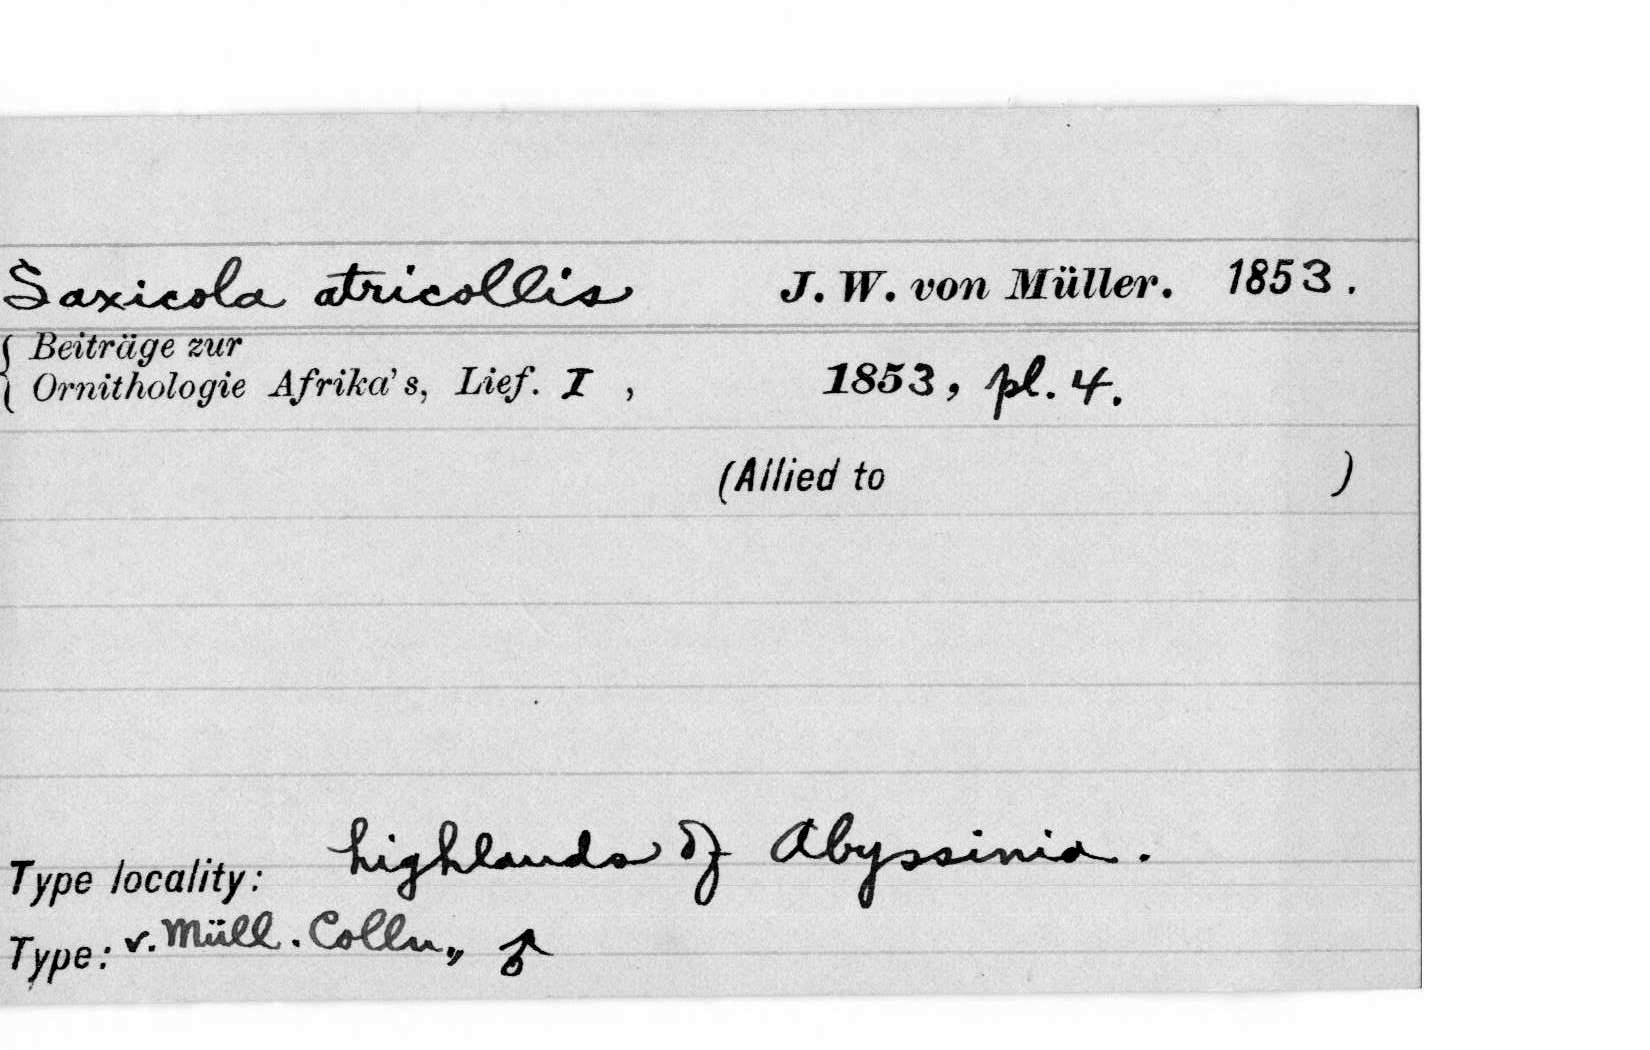 Saxicola atricollis J. W. von Müller. 1853.
{ Beiträge zur
Ornithologie Afrika's, Lief. I , 1853, pl. 4.
(Allied to )
Type locality: highlands of Abyssinia.
Type: v. Müll. Colln,, ♂